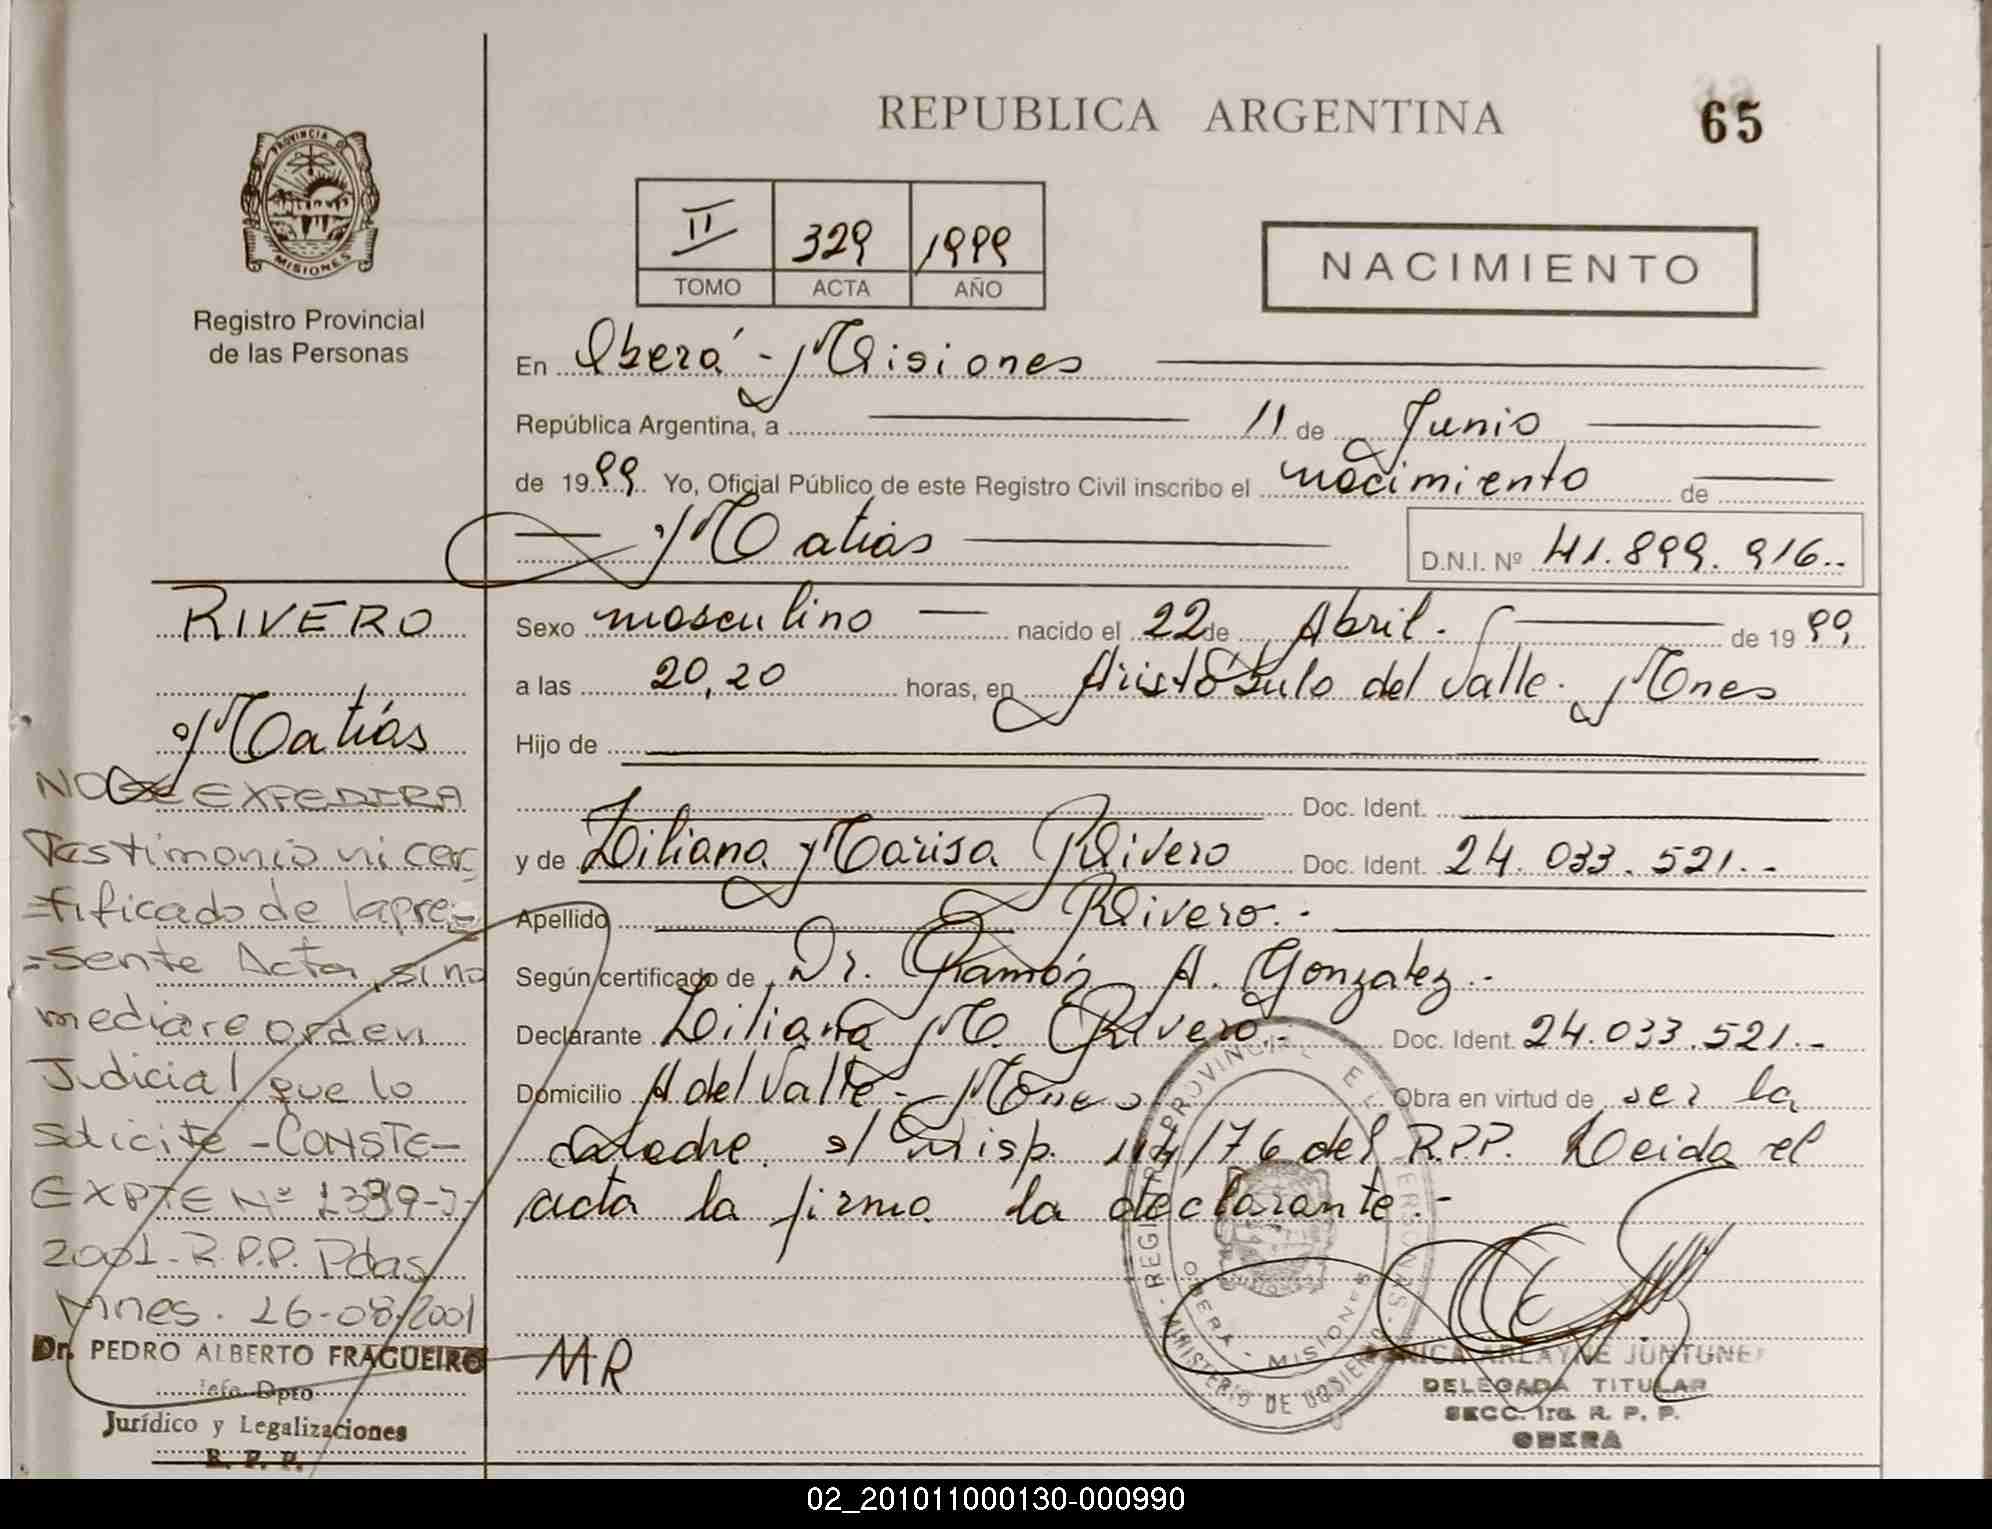 REPUBLICA ARGENTINA
65
PROVINCIA DE
MISIONES
Registro Provincial
de las Personas
II 329 1999
TOMO ACTA AÑO
NACIMIENTO
En Oberá - Misiones
República Argentina, a 11 de Junio
de 1999 Yo, Oficial Público de este Registro Civil inscribo el nacimiento de
Matías
D.N.I. Nº 41.899.916..
RIVERO
Matías
Sexo masculino nacido el 22 de Abril. de 1999
a las 20,20 horas, en Aristóbulo del Valle. Mnes
Hijo de
Doc. Ident.
y de Liliana Marisa Rivero Doc. Ident. 24.033.521.-
Apellido Rivero.-
Según certificado de Dr. Ramón A. Gonzalez.-
Declarante Liliana M. Rivero.- Doc. Ident. 24.033.521.-
Domicilio A del Valle - Mnes Obra en virtud de ser la
Madre. s/ Disp. 114/76 del R.P.P. Leida el
acta la firma la declarante.-
NO SE EXPEDIRA
Testimonio ni cer
=tificado de la pre=
=sente Acta, si no
mediare orden
Judicial que lo
solicite - CONSTE-
EXPTE Nº 1339-J-
2001- R.P.P. Pdas
Mnes. 16-08-2001
Dr. PEDRO ALBERTO FRAGUEIRO
Jefe Dpto
Jurídico y Legalizaciones
R. P. P.
MR
OBERA - MISIONES
JUNTUNEN
DELEGADA TITULAR
SECC. 1ra. R. P. P.
OBERA
02_201011000130-000990